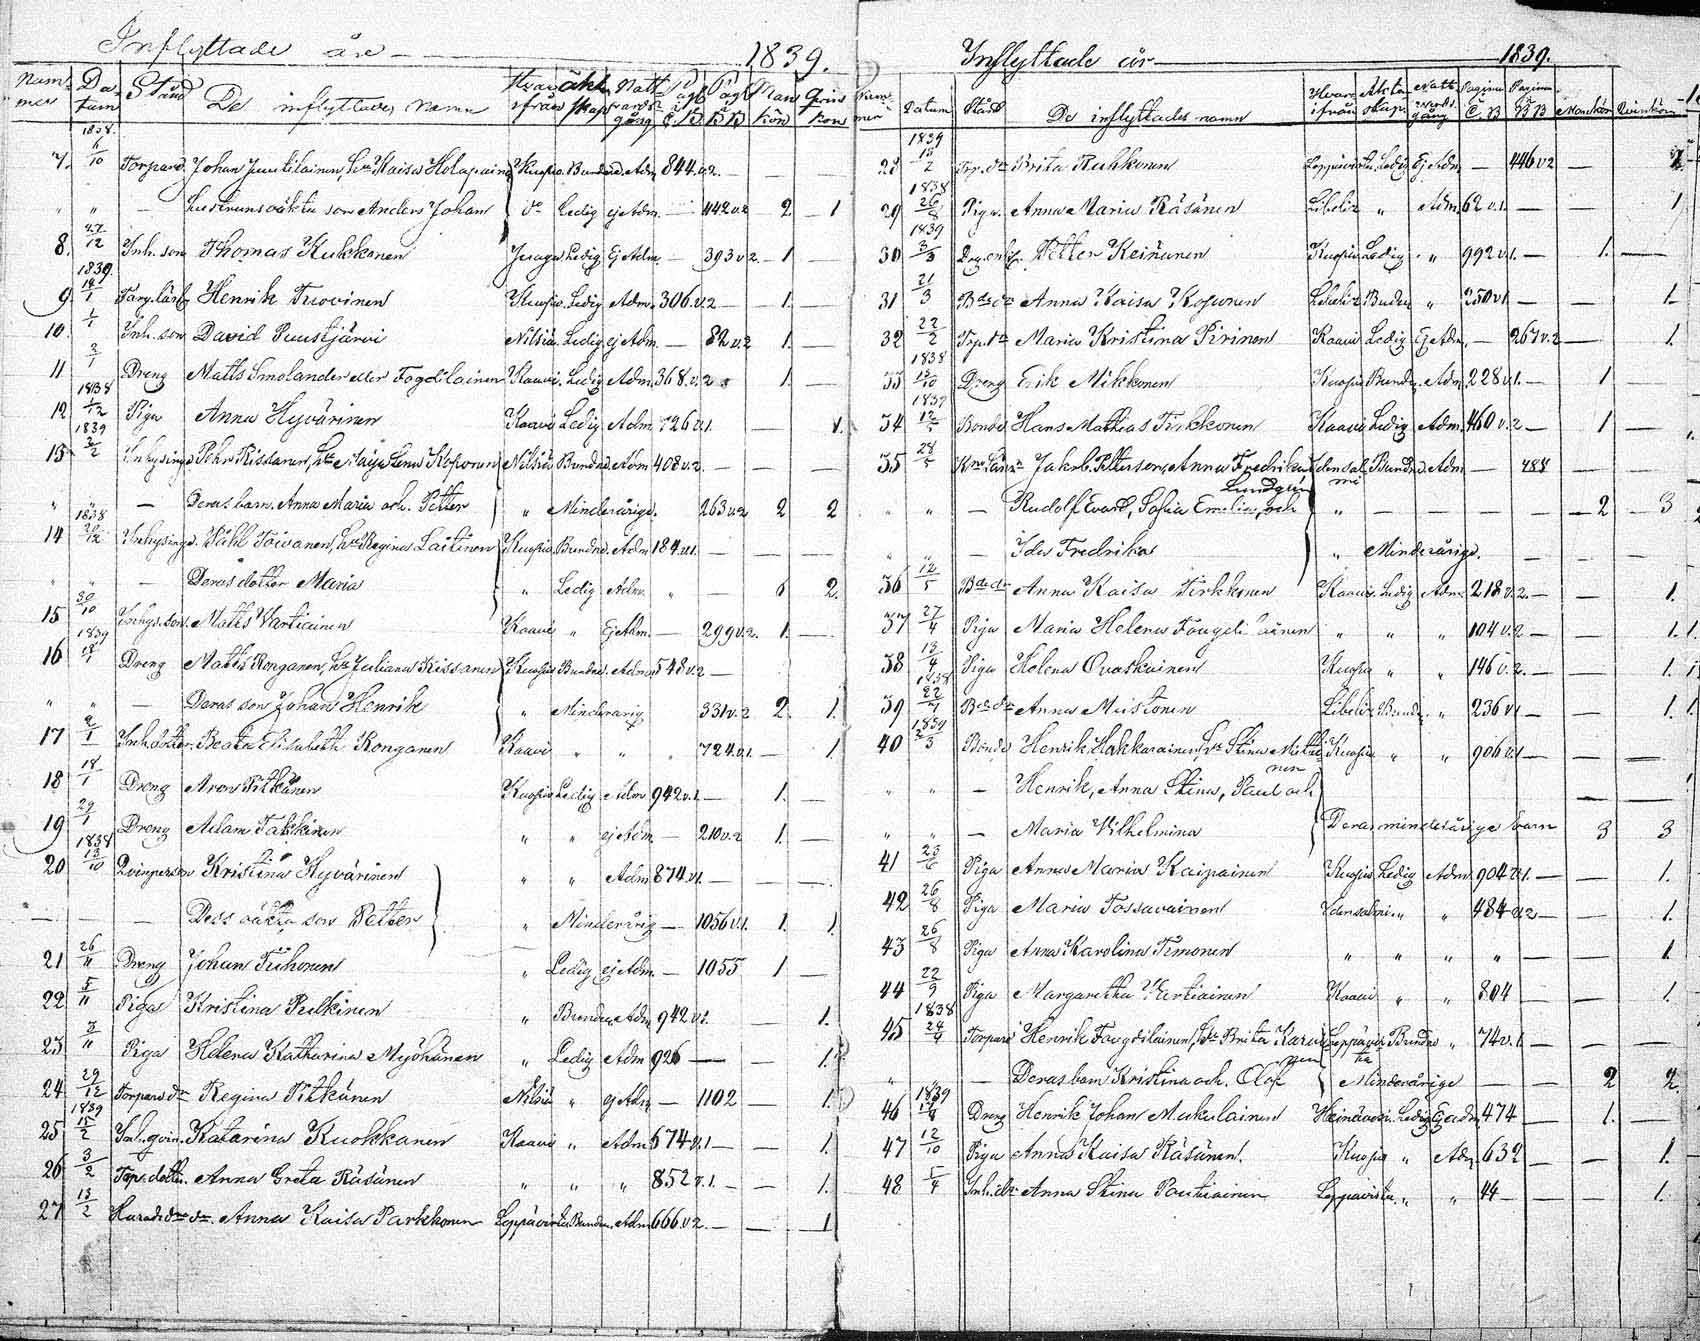 Inflyttade åre 1839.
Nummer Datum Stånd De inflyttades namn Hvar ifrån Äktaskap Nattvardsgång Pag. i C.B. Pag. i B.B. Mankön Qvinkön
1838.
7. 6/10 Torpare Johan Juutilainen, h. Kaisa Holopainen Kuopio Bundne Adm 844 v.2. —
" " — hustruns oäkta son Anders Johan do Ledig ej Adm. — 442 v.2 2 1
8. 27/12 Inh. son Thomas Kukkonen Juuga Ledig Ej Adm. — 393 v.2. 1 —
1839.
9 14/1 Farg. lärl. Henrik Tuovinen Kuopio Ledig Adm. 306. v.2 — 1. —
10. 1/1 Inh. son David Puustjärvi Nilsiä Ledig ej Adm. — 82 v.2 1. —
11 2/1 Dreng Matts Smolander eller Fogdilainen Kaavi Ledig Adm. 368. v.2 1. —
1838
12 1/12 Piga Anna Hyvärinen Kaavi Ledig Adm 726 v.1. — 1.
1839
13 2/2 Inhysinge Pehr Rissanen, h. Maja Lena Koponen Nilsiä Bundne Adm 408 v.2. —
" " — Deras barn Anna Maria och Petter " Minderårige. 263 v.2 2 2
1838
14 20/12 Inhysinge. Påhl Toivanen, h. Regina Laitinen Kuopio Bundne Adm 184 v.1. — — —
" " — Deras dotter Maria " Ledig Adm. " — 2.
15 30/10 Inhys. son. Matts Vartiainen Kaavi " Ej Adm. — 299 v.2. 1. —
1839
16 18/1 Dreng Matts Ronganen, h. Juliana Kissanen Kuopio Bundne Adm. 548 v.2 —
" " — Deras son Johan Henrik " Minderårig 331 v.2 2. 1.
17 2/1 Inh. dotter. Beata Elisabeth Ronganen Kaavi " " " 724 v.1. — 1.
18 18/1 Dreng Aron Pitkänen Kuopio Ledig Adm 942 v.1. — 1. —
19 29/1 Dreng Adam Takkinen " " ej Adm. — 210 v.2 1. —
1838
20 13/10 Qvinperson Kristina Hyvärinen " " Adm 874 v.1. — — —
— — — Dess oäkta son Petter " Minderårig — 1056 v.1. 1. 1.
21 26/11 Dreng Johan Tiihonen " Ledig ej Adm. — 1055 1 —
22 5/11 Piga Kristina Pulkinen " Bunden Adm 942 v.1. — 1.
23 3/11 Piga Helena Katharina Myöhänen " Ledig Adm 926 — 1.
24 29/12 Torpare dr Regina Pitkänen Nilsiä " ej Adm — 1102 — 1.
1839
25 15/2 Inh. qvin. Katarina Kuokkanen Kaavi " Adm 674 v.1 — 1.
26 3/2 Torp. dotter. Anna Greta Räsänen " " " 852 v.1. — 1.
27 13/2 Anna Kaisa Parkkonen Leppävirta Bunden Adm 666 v.2. — 1
Inflyttade år 1839.
Nummer Datum Stånd De inflyttades namn Hvar ifrån Äktaskap. Nattvardsgång Pagina C.B Pagina B.B Mankön Qvinkön
1839
28 15/2 Torp. dr Brita Ruhkonen Leppävirta Ledig Ej Adm — 446 v.2 — 1.
1838
29 26/8 Piga. Anna Maria Räsänen Libeliz " Adm 62 v.1. — — 1
1839
30 3/3 Petter Keinänen Kuopio Ledig " 992 v.1. — 1. —
31 21/3 Bde dr Anna Kaisa Koponen Libeliz Bunden " 250 v.1 — — 1.
32 22/2 Trp. dr Maria Kristina Pirinen Kaavi Ledig Ej Adm. — 267 v.2 — 1.
1838
33 13/10 Dreng Erik Mikkonen Kuopio Bunden Adm 228 v.1. — 1 —
1839
34 12/5 Bonde Hans Mathias Tirkkonen Kaavi Ledig Adm. 460 v.2 — 1 —
35 28/5 Jakob. Petterson, Anna Fredrika Lundgrén Idensalmi Bundne. Adm — 488
" " — Rudolf Evard, Sofia Emelia, och " — — — — 2 — 3
" " — Ida Fredrika " Minderårige. — — —
36 12/5 Bde dr Anna Kaisa Tirkkonen Kaavi Ledig Adm 218 v.2. — — 1.
37 27/4 Piga Maria Helena Fougdilainen " " " 104 v.2 — — 1.
38 13/4 Piga Helena Ovaskainen Kuopio " " 146 v.2. — — 1.
1838
39 22/7 Bde dr Anna Mustonen Libeliz Bunde. " 236 v.1 — — 1.
1839
40 2/3 Bonde Henrik Hakkarainen, h. Stina Miettinen Kuopio " " 906 v.1 — — —
" " — Henrik, Anna Stina, Paul och
" " — Maria Vilhelmina Deras minderårige barn 3 3
41 23/6 Piga Anna Maria Kaipainen Kuopio Ledig Adm. 904 v.1. — — 1.
42 26/8 Piga Maria Tossavainen Idensalmi " " 484 v.2 — — 1.
43 26/8 Piga Anna Karolina Timonen " " " " — — 1
44 22/9 Piga Margaretha Vartiainen Kaavi " " 804 — — 1.
1838
45 24/9 Torpare Henrik Fougdilainen, h. Brita Karvinen Leppävirta Bundne " 74 v.1 — — —
" " — Deras barn Kristina och. Olof Minderårige — — 2 2.
1839
46 Dreng Henrik Johan Mukulainen Heinävesi Ledig Ej adm 474 — 1. —
47 12/10 Piga Anna Kaisa Räsänen. Kuopio " Adm. 632 — — 1.
48 5/4 Inh. dr Anna Stina Poutiainen Leppävirta. " " 44 — — 1.